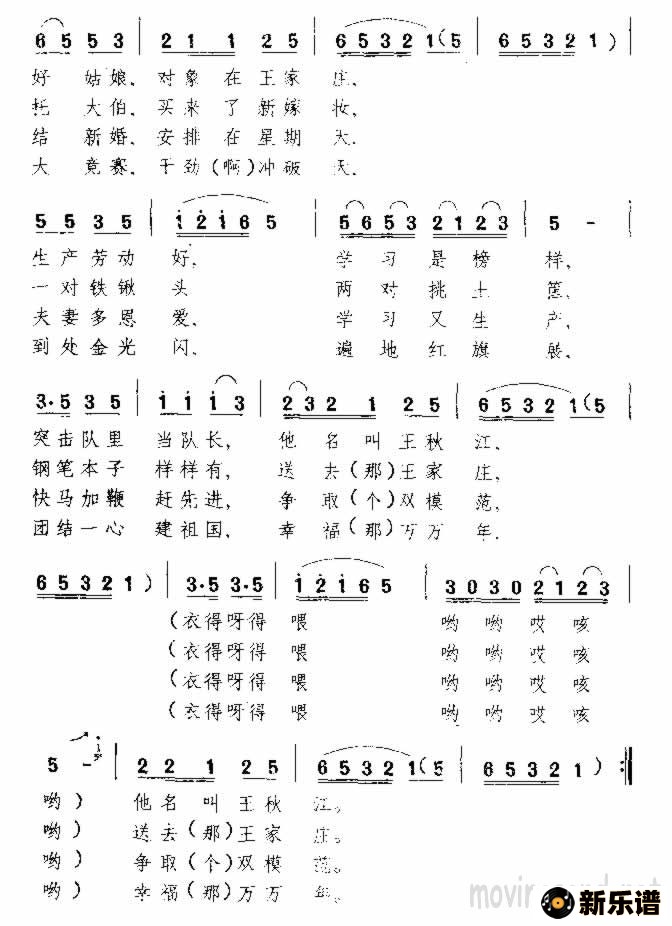 6 5 5 3 | 2 1 1 1 2 5 | 6 5 3 2 1 (5 | 6 5 3 2 1 ) |
好 姑娘, 对象在王家 庄,
托 大伯, 买来了新嫁 妆,
结 新婚, 安排在星期 天.
大 竞赛, 干劲(啊)冲破 天.
5 5 3 5 | 1 2 1 6 5 | 5 6 5 3 2 1 2 3 | 5 - |
生产劳动 好, 学习是榜 样,
一对铁锹 头 两对挑土 筐,
夫妻多恩 爱, 学习又生 产,
到处金光 闪, 遍地红旗
3·5 3 5 | 1 1 1 3 | 2 3 2 1 2 5 | 6 5 3 2 1 (5 |
突击队里 当队长, 他名叫王秋 江.
钢笔本子 样样有, 送去(那)王家 庄.
快马加鞭 赶先进, 争取(个)双模 范,
团结一心 建祖国, 幸福(那)万万 年.
6 5 3 2 1 ) | 3·5 3·5 | 1 2 1 6 5 | 3 0 3 0 2 1 2 3 |
(衣得呀得 喂 哟哟哎咳
(衣得呀得 喂 哟哟哎咳
(衣得呀得 喂 哟哟哎咳
(衣得呀得 喂 哟哟哎咳
5 - | 2 2 1 2 5 | 6 5 3 2 1 (5 | 6 5 3 2 1 ) :‖
哟) 他名叫王秋 江。
哟) 送去(那)王家 庄。
哟) 争取(个)双模 范。
哟) 幸福(那)万万 年。
新乐谱